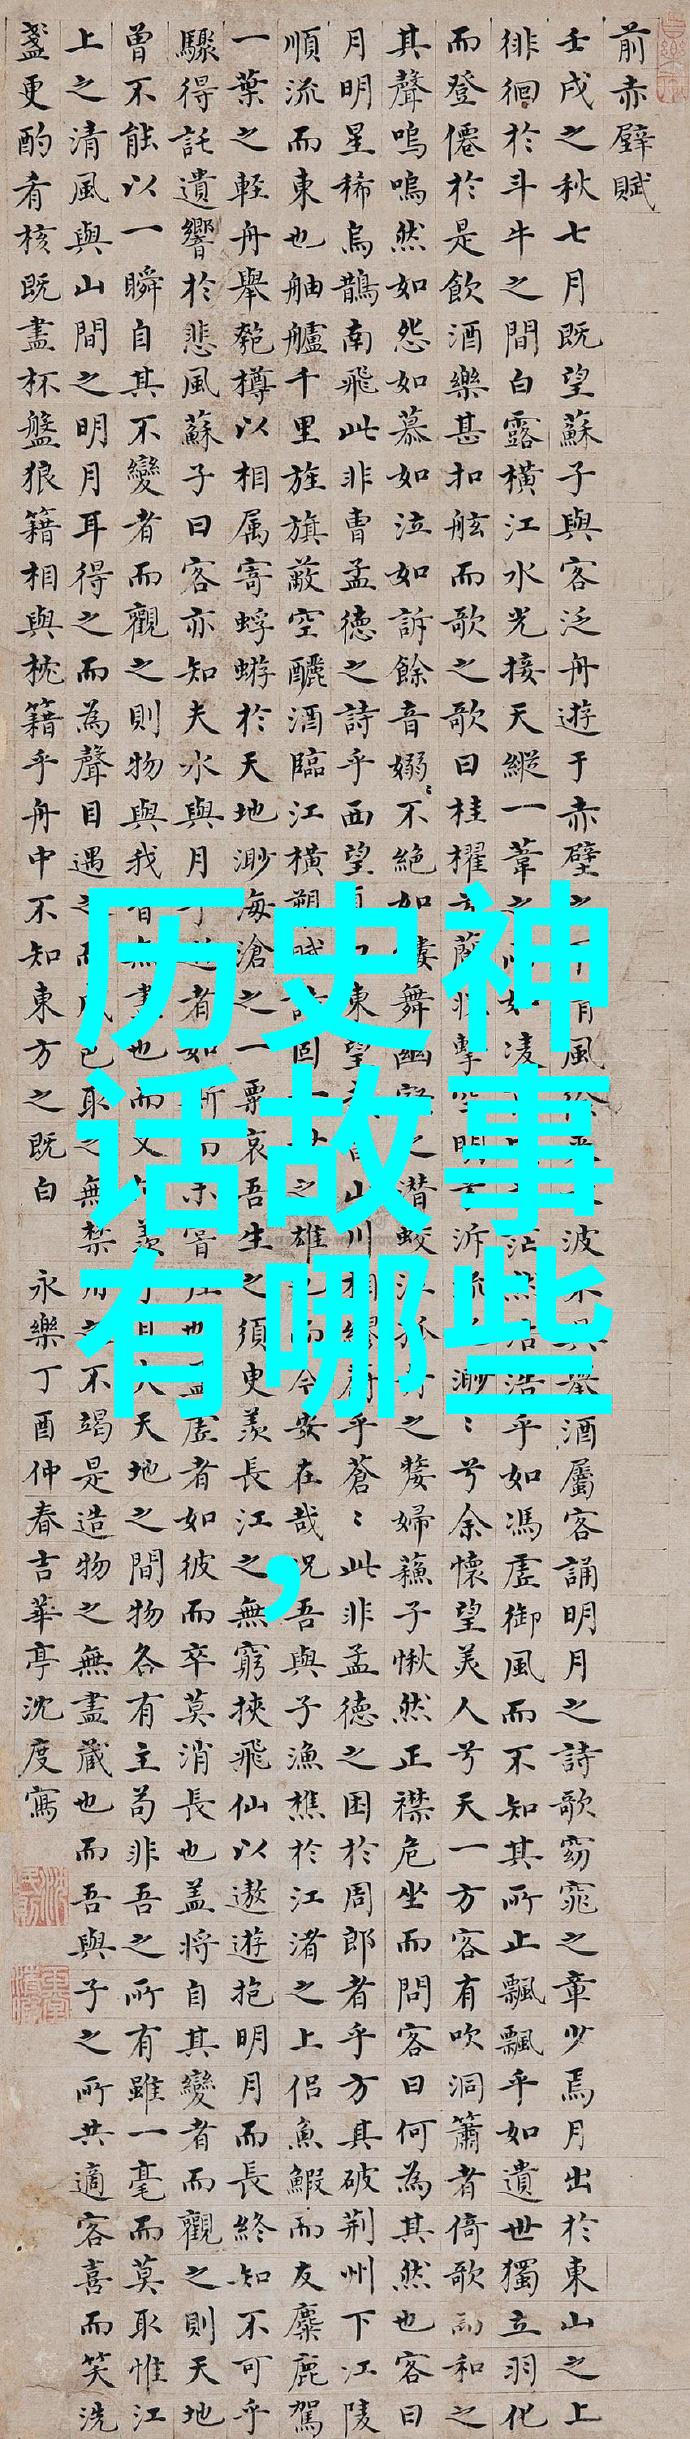 前赤壁賦
壬戌之秋七月既望蘇子與客泛舟遊于赤壁風波酒屬客誦明月之詩歌窈窕之章少焉月出於東山之上
徘徊於斗牛之間白露橫江水光接天縱一葦之如凌浩乎如馮虛御風而不知其所止飄飄乎如遺世獨立羽化
而登僊於是飲酒樂甚扣舷而歌之歌曰桂櫂蘭擊空明泝渺〻兮余懷望美人兮天一方客有吹洞簫者倚歌而和之
其聲嗚嗚然如怨如慕如泣如訴餘音嫋〻不絕如舞幽之潛蛟之嫠婦蘓子愀然正襟危坐而問客曰何為其然也客曰
月明星稀烏鵲南飛此非曹孟德之詩乎西望東望山川相繆乎蒼〻此非孟德之困於周郎者乎方其破荆州下江陵
順流而東也舳艫千里旌旗蔽空釃酒臨江橫固之雄而今安在哉況吾與子漁樵於江渚之上侶魚鰕而友麋鹿駕
一葉之輕舟舉匏樽以相属寄蜉蝣於天地渺海滄之一粟哀吾生之須臾羨長江之無窮挾飛仙以遨遊抱明月而長終知不可乎
驟得託遺響於悲風蘇子曰客亦知夫水與月者如也虛者如彼而卒莫消長也盖將自其變者而觀之則天地
曾不能以一瞬自其不變者而觀之則物與我盡也而又羨天地之間物各有主苟非吾之所有雖一毫而莫取惟江
上之清風與山間之明月耳得之而為聲目遇色取之無禁不竭是造物之無盡藏也而吾與子之所共適客喜而笑洗
盞更酌肴核既盡杯盤狼籍相與枕籍乎舟中不知東方之既白 永樂丁酉仲春吉華亭沈度寫
历史神
话故事
有哪些
，